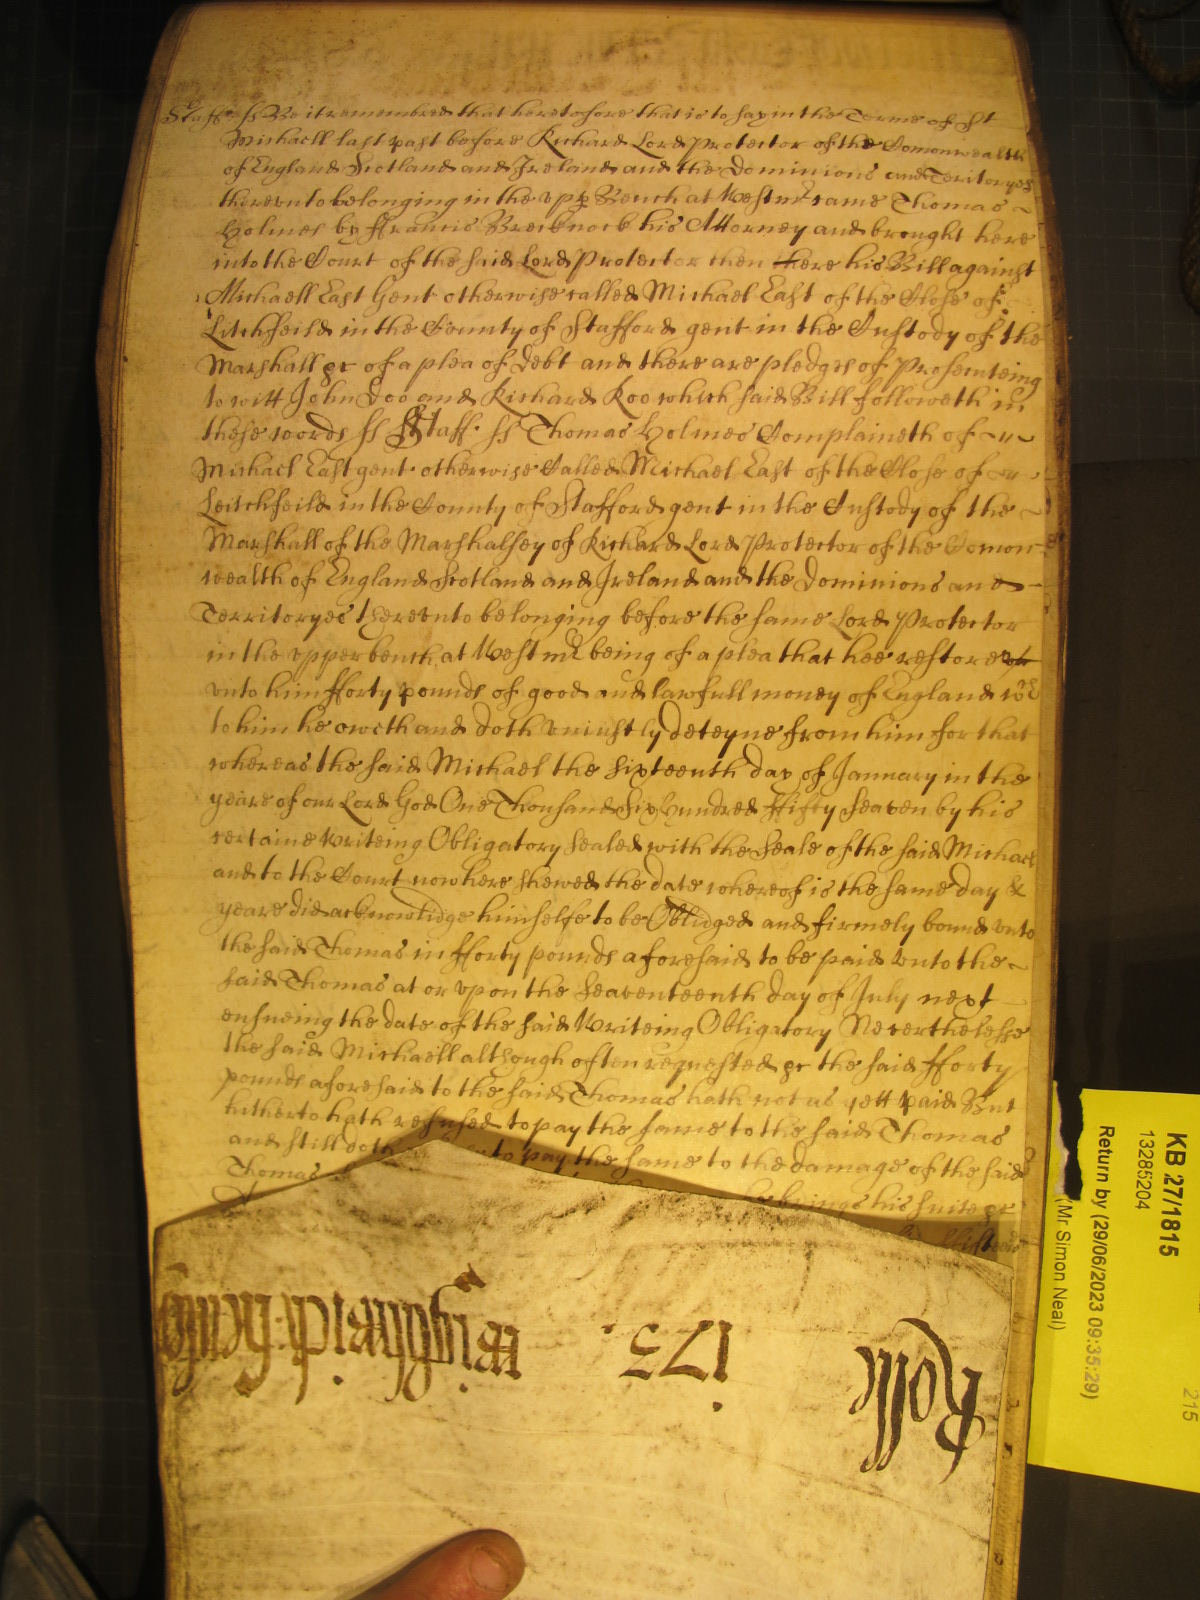 Staff ss Be it remembred that heretofore that is to say in the Terme of St
Michaell last past before Richard Lord Protector of the Comonwealth
of England Scotland and Ireland and the Dominions and Teritoryes
therevnto belonging in the vpp Bench at Westmr came Thomas
Holmes by ffrancis Brecknock his Attorney and brought here
into the Court of the said Lord Protector then there his Bill against
Michaell East Gent otherwise called Michael East of the Close of
Litchfeild in the County of Stafford gent in the Custody of the
Marshall &c of a plea of Debt and there are pledges of Prosecuteing
to witt John Doo and Richard Roo which said Bill followeth in
these words ss Staff. ss Thomas Holmes Complaineth of
Michael East gent otherwise Called Michael East of the Close of
Leitchfeild in the County of Stafford gent in the Custody of the
Marshall of the Marshalsey of Richard Lord Protector of the Comon
wealth of England Scotland and Ireland and the Dominions and
Territoryes therevnto belonging before the same Lord Protector
in the vpper bench at Westmr being of a plea that hee restore
vnto him fforty pounds of good and lawfull money of England wch
to him he oweth and doth vniustly deteyne from him for that
whereas the said Michael the sixteenth day of January in the
yeare of our Lord God One Thousand Six Hundred ffifty seaven by his
certaine Writeing Obligatory sealed with the seale of the said Michael
and to the Court now here shewed the date whereof is the same day &
yeare did acknowlidge himselfe to be Obliged and firmely bound vnto
the said Thomas in fforty pounds aforesaid to be paid vnto the
said Thomas at or vpon the seaventeenth day of July next
ensueing the date of the said Writeing Obligatory Neverthelesse
the said Michaell although often requested &c the said fforty
pounds aforesaid to the said Thomas hath not as yett paid But
hitherto hath refused to pay the same to the said Thomas
and still doth to pay the same to the damage of the said
Thomas
he brings his suite &c
Rolle
173.
KB 27/1815
13285204
Return by (29/06/2023 09:35:29)
(Mr Simon Neal)
215